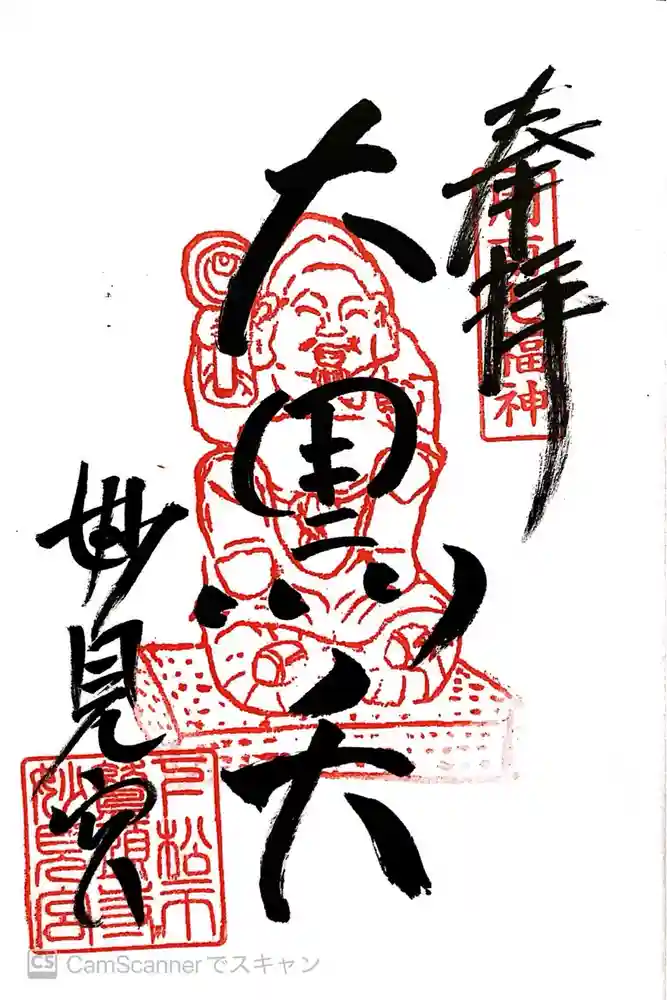 奉拝
周南七福神
大黒天
妙見宮
下松市
鷲頭寺
妙見宮
CS CamScannerでスキャン